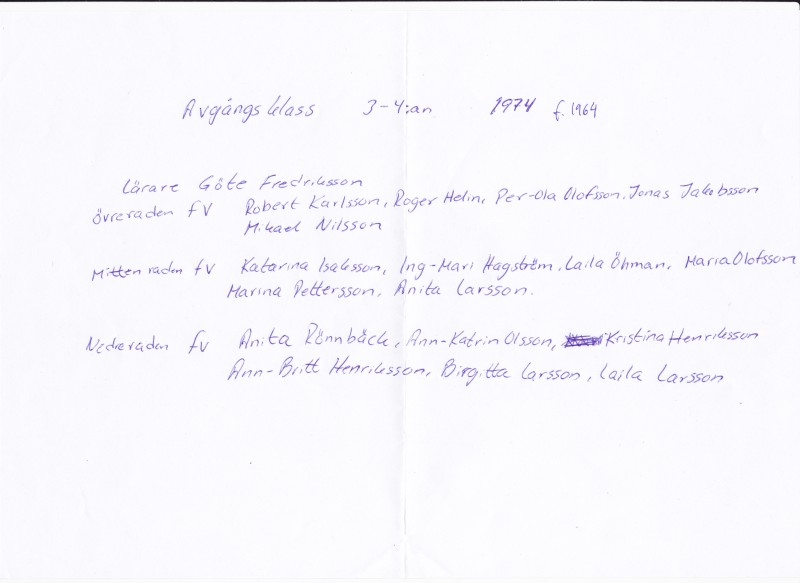 Avgångsklass 3-4:an 1974 f. 1964
Lärare Göte Fredriksson
övreraden fv Robert Karlsson, Roger Helin, Per-Ola Olofsson, Jonas Jakobsson
Mikael Nilsson
Mitten raden fv Katarina Isaksson, Ing-Mari Hagström, Laila Öhman, Maria Olofsson
Marina Pettersson, Anita Larsson.
Nedreraden fv Anita Rönnbäck, Ann-Katrin Olsson, Kristina Henriksson
Ann-Britt Henriksson, Birgitta Larsson, Laila Larsson